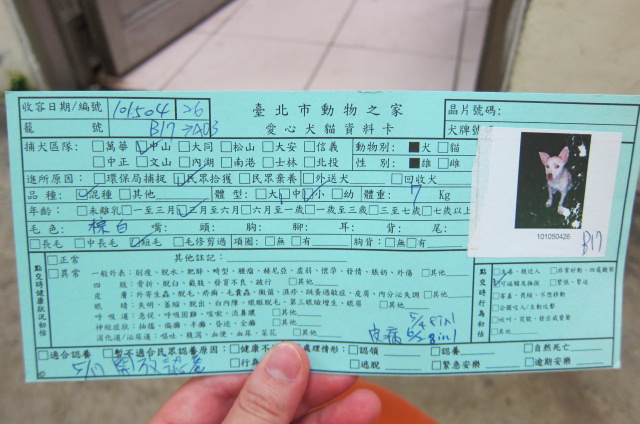 收容日期/編號 101504 26 臺北市動物之家 晶片號碼:
籠 號 B17→A03 愛心犬貓資料卡 犬牌號
捕犬區隊: □萬華 ☑中山 □大同 □松山 □大安 □信義 動物別: ■犬 □貓
□中正 □文山 □內湖 □南港 □士林 □北投 性 別: ■雄 □雌
進所原因: □環保局捕捉 ☑民眾拾獲 □民眾棄養 □外送犬 □回收犬
品 種: ☑混種 □其他 體 型: □大 □中 ☑小 □幼 體重: 7 Kg
年齡: □未離乳 □一至三月 ☑三月至六月 □六月至一歲 □一歲至三歲 □三至七歲 □七歲以上
毛 色: 棕白 嘴: 頭: 胸: 腳: 耳: 背: 尾:
□長毛 □中長毛 ☑短毛 □毛修剪過 項圈: □無 □有 胸背: □無 □有
點交時健康狀況初估 □正常 其他註記:
□異常 一般外表: 削瘦、脫水、肥胖、畸型、腫瘤、赫尼亞、虛弱、懷孕、發情、脹奶、外傷 □其他
四 肢: 骨折、脫臼、截肢、發育不良、跛行 □其他
皮 膚: 外寄生蟲、脫毛、疥癬、毛囊蟲、黴菌、濕疹、跳蚤過敏症、皮屑、內分泌失調 □其他
眼 睛: 失明、萎縮、脫出、白內障、眼瞼脫毛、第三眼瞼增生、眼屎 □其他
呼 吸 道: 急促、呼吸困難、咳嗽、流鼻膿 □其他
神經症狀: 抽搐、偏癱、半癱、昏迷、全癱 □其他
消化道/泌尿道: 嘔吐、腹瀉、血便、血尿、菜花 □其他
皮病 5/4 8 in 1
5/5 8 in 1
點交時行為初估
101050426
B17
□適合認養 □暫不適合民眾認養原因: □健康不 處理情形: □認領 □認養 □自然死亡
□行為 □逃脫 □緊急安樂 □逾期安樂
5/17 開放認養